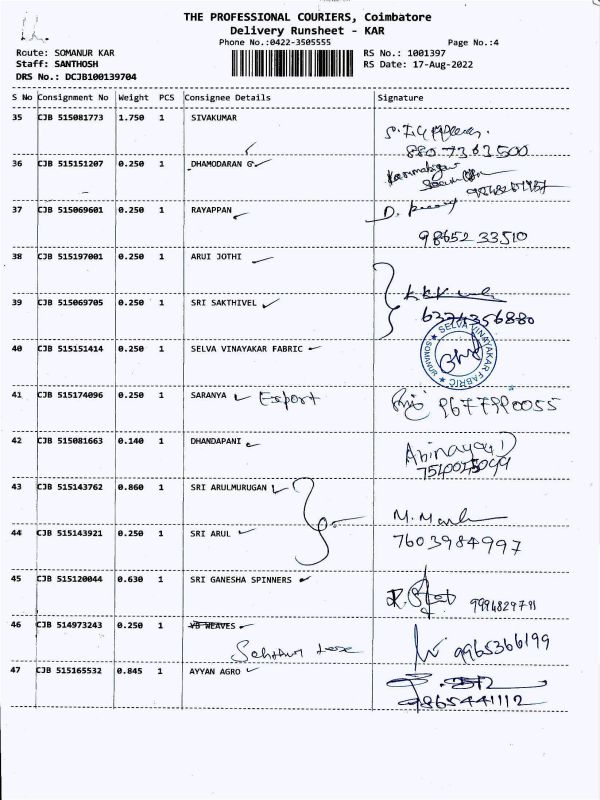 THE PROFESSIONAL COURIERS, Coimbatore
Delivery Runsheet - KAR
Phone No.:0422-3505555 Page No.:4
Route: SOMANUR KAR RS No.: 1001397
Staff: SANTHOSH RS Date: 17-Aug-2022
DRS No.: DCJB100139704
S No Consignment No Weight PCS Consignee Details Signature
35 CJB 515081773 1.750 1 SIVAKUMAR
880 7363500
36 CJB 515151207 0.250 1 DHAMODARAN G
37 CJB 515069601 0.250 1 RAYAPPAN
98652 33510
38 CJB 515197001 0.250 1 ARUI JOTHI
39 CJB 515069705 0.250 1 SRI SAKTHIVEL
6374356880
40 CJB 515151414 0.250 1 SELVA VINAYAKAR FABRIC
SELVA VINAYAKAR FABRIC SOMANUR
41 CJB 515174096 0.250 1 SARANYA Export
42 CJB 515081663 0.140 1 DHANDAPANI
43 CJB 515143762 0.860 1 SRI ARULMURUGAN
44 CJB 515143921 0.250 1 SRI ARUL
7603984997
45 CJB 515120044 0.630 1 SRI GANESHA SPINNERS
46 CJB 514973243 0.250 1 VB WEAVES
9965366199
47 CJB 515165532 0.845 1 AYYAN AGRO
9865441112